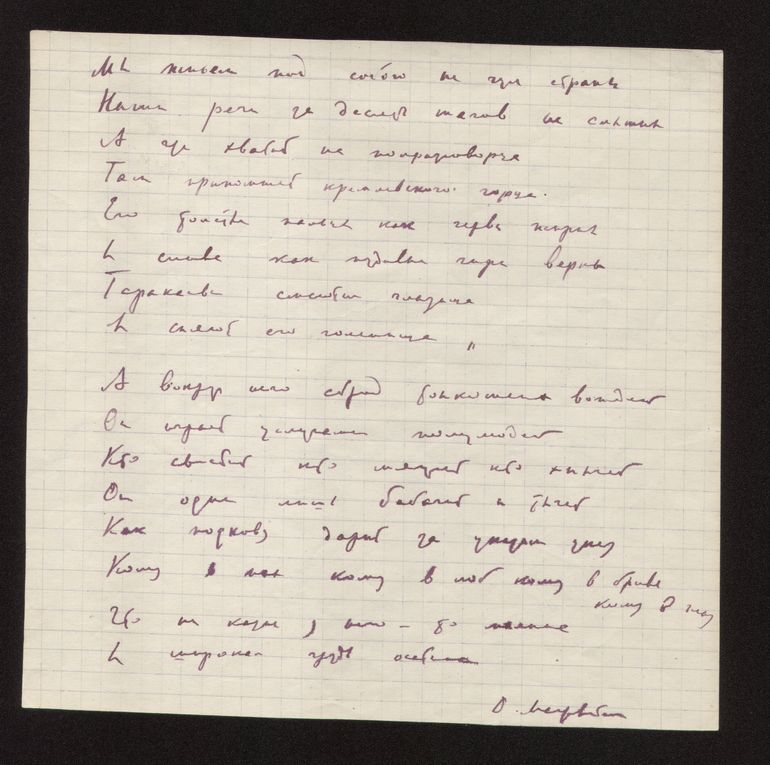 Мы живем под собою не чуя страны
Наши речи за десять шагов не слышны
А где хватит на полразговорца
Там припомнят кремлевского горца.
Его толстые пальцы как черви жирны
И слова как пудовые гири верны
Тараканьи смеются глазища
И сияют его голенища
А вокруг него сброд тонкошеих вождей
Он играет услугами полулюдей
Кто свистит кто мяучит кто хнычет
Он один лишь бабачит и тычет
Как подкову дарит за указом указ
Кому в пах кому в лоб кому в бровь
кому в глаз
Что ни казнь у него – то малина
И широкая грудь осетина
О. Мандельштам